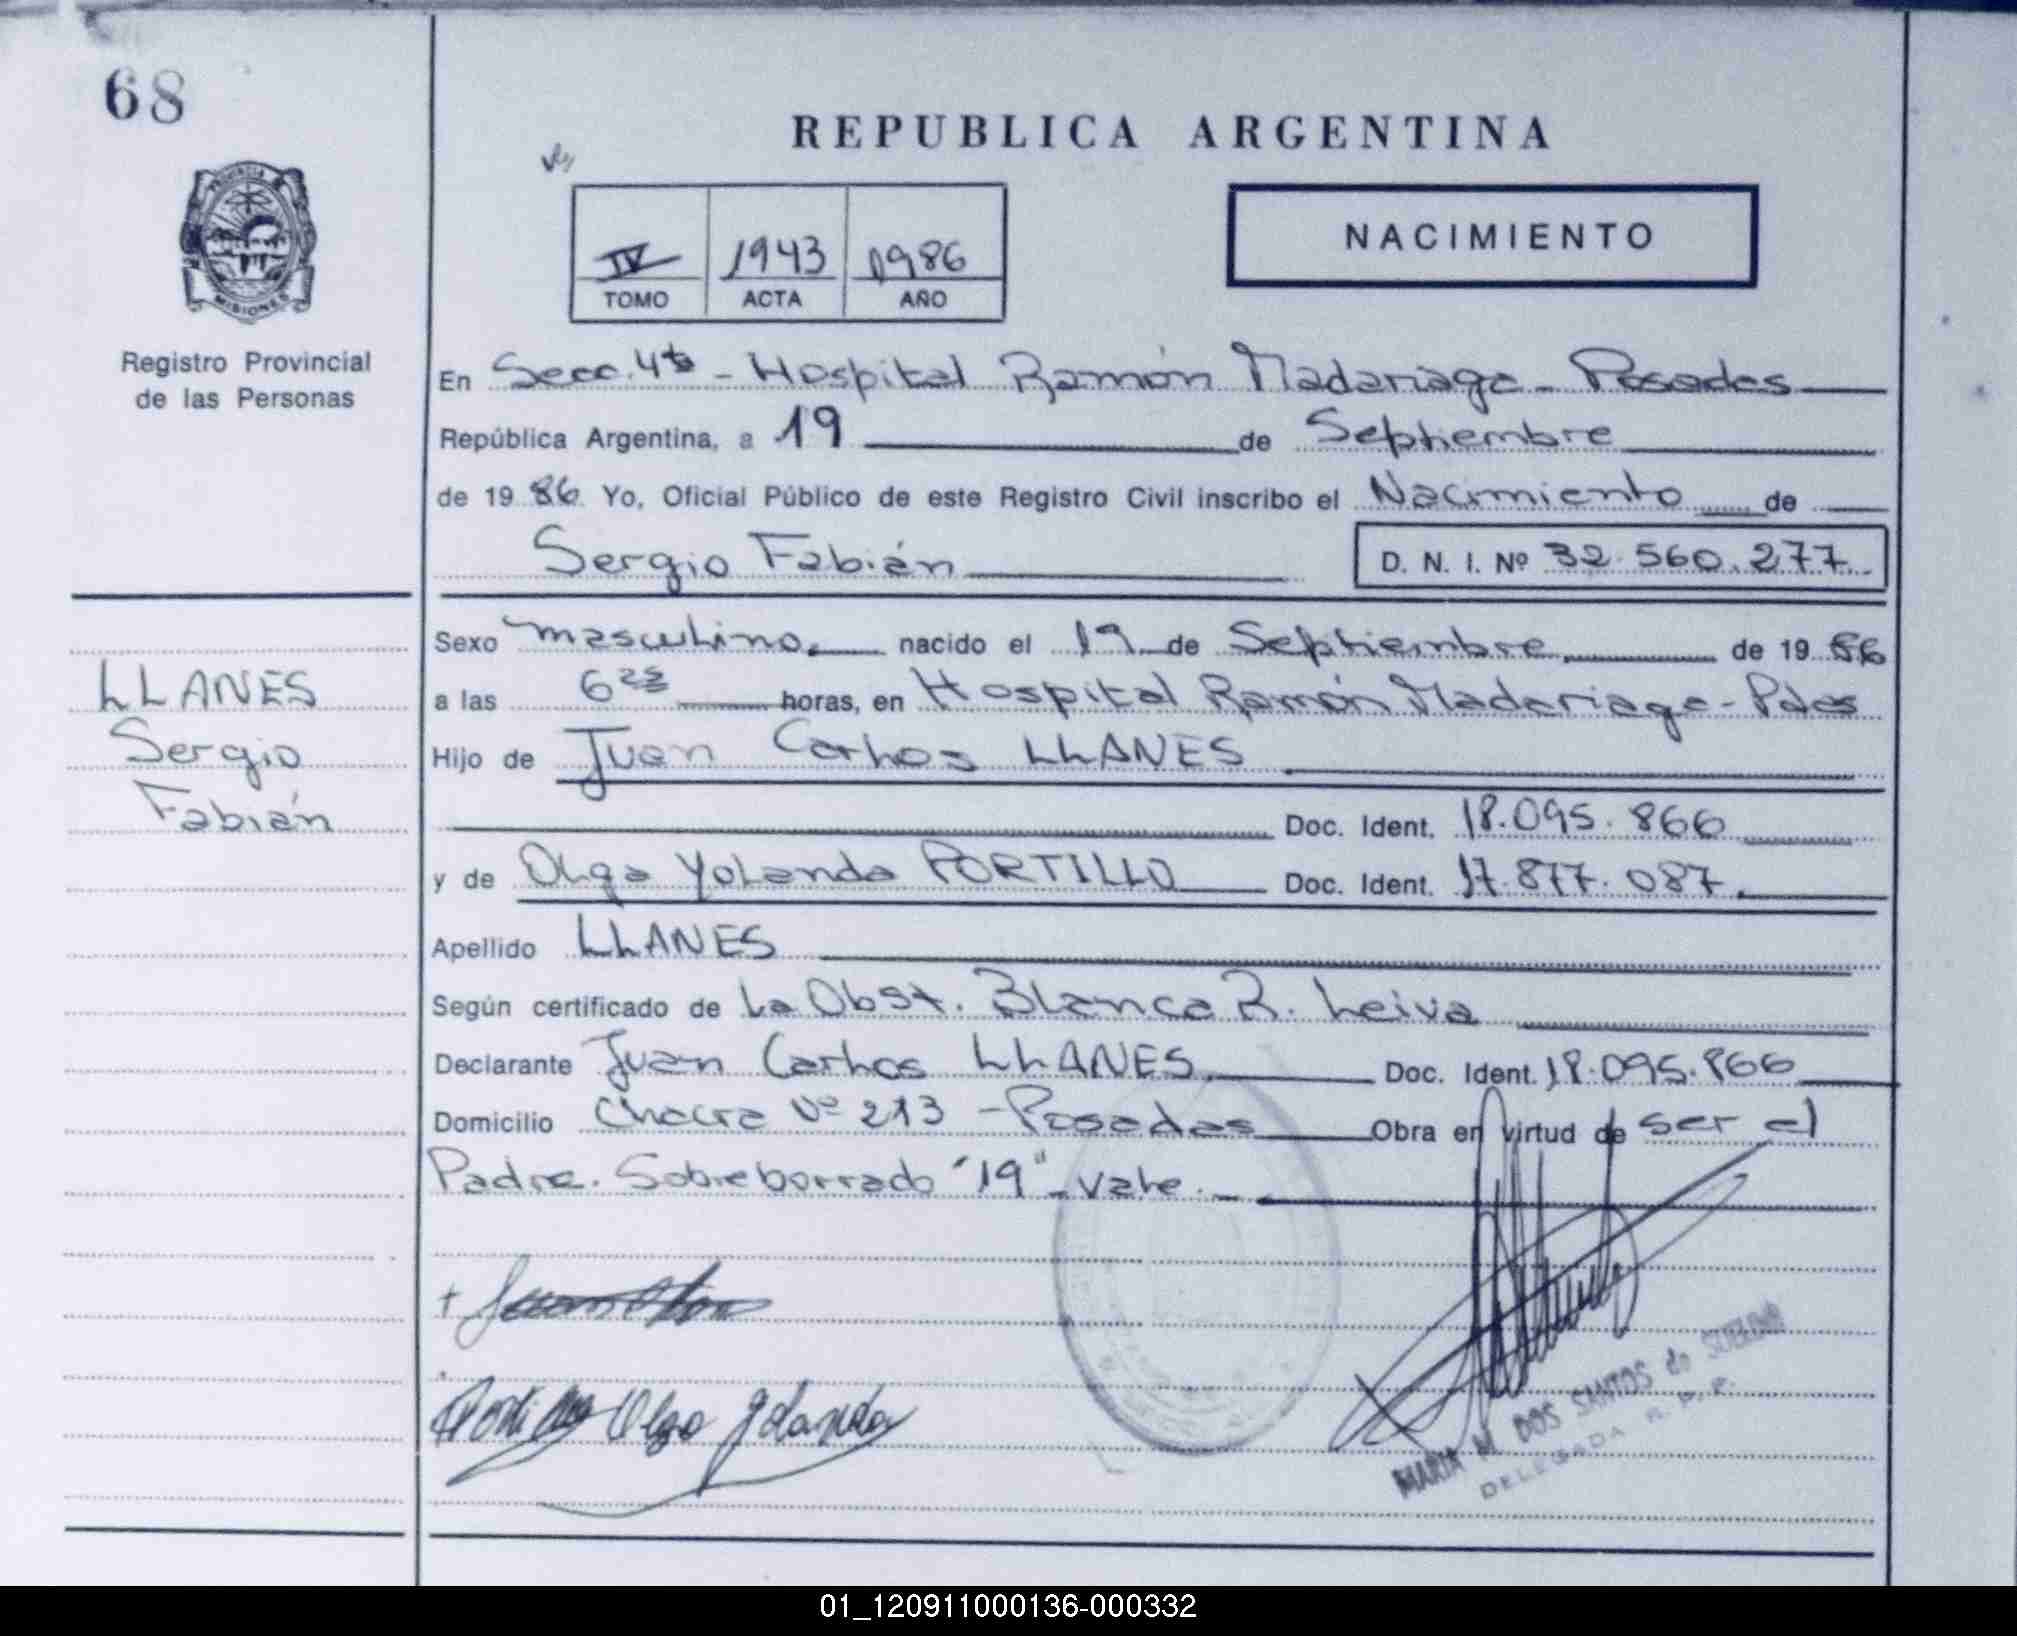 68
REPUBLICA ARGENTINA
PROVINCIA DE
MISIONES
IV 1943 1986
TOMO ACTA AÑO
NACIMIENTO
Registro Provincial
de las Personas
En Secc. 4ta - Hospital Ramón Madariaga - Posadas
República Argentina, a 19 de Septiembre
de 1986 Yo, Oficial Público de este Registro Civil inscribo el Nacimiento de
Sergio Fabián D. N. I. Nº 32.560.277
LLANES
Sergio
Fabián
Sexo masculino, nacido el 19 de Septiembre, de 1986
a las 6 25 horas, en Hospital Ramón Madariaga - Pdas
Hijo de Juan Carlos LLANES
Doc. Ident. 18.095.866
y de Olga Yolanda PORTILLO Doc. Ident. 17.877.087.
Apellido LLANES
Según certificado de La Obst. Blanca R. Leiva
Declarante Juan Carlos LLANES, Doc. Ident. 18.095.866
Domicilio Chacra Nº 213 - Posadas Obra en virtud de ser el
Padre. Sobreborrado "19" - vale. -
Olga Yolanda
MARIA M. DOS SANTOS de
DELEGADA R. P. P.
01_120911000136-000332